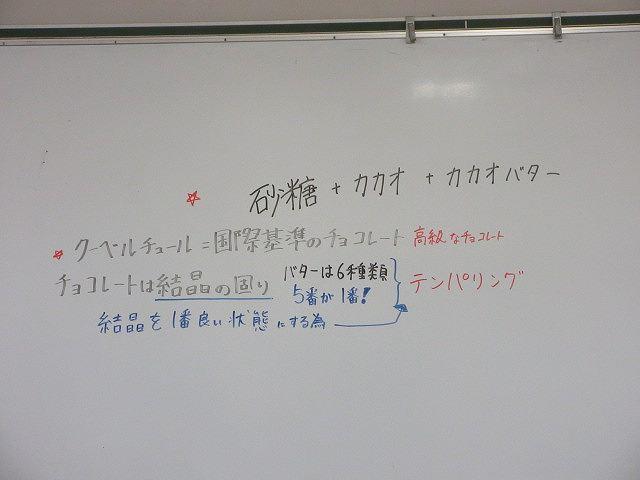 ☆ 砂糖 + カカオ + カカオバター
☆ クーベルチュール = 国際基準のチョコレート 高級なチョコレート
チョコレートは結晶の固り バターは6種類 テンパリング
5番が1番!
結晶を1番良い状態にする為